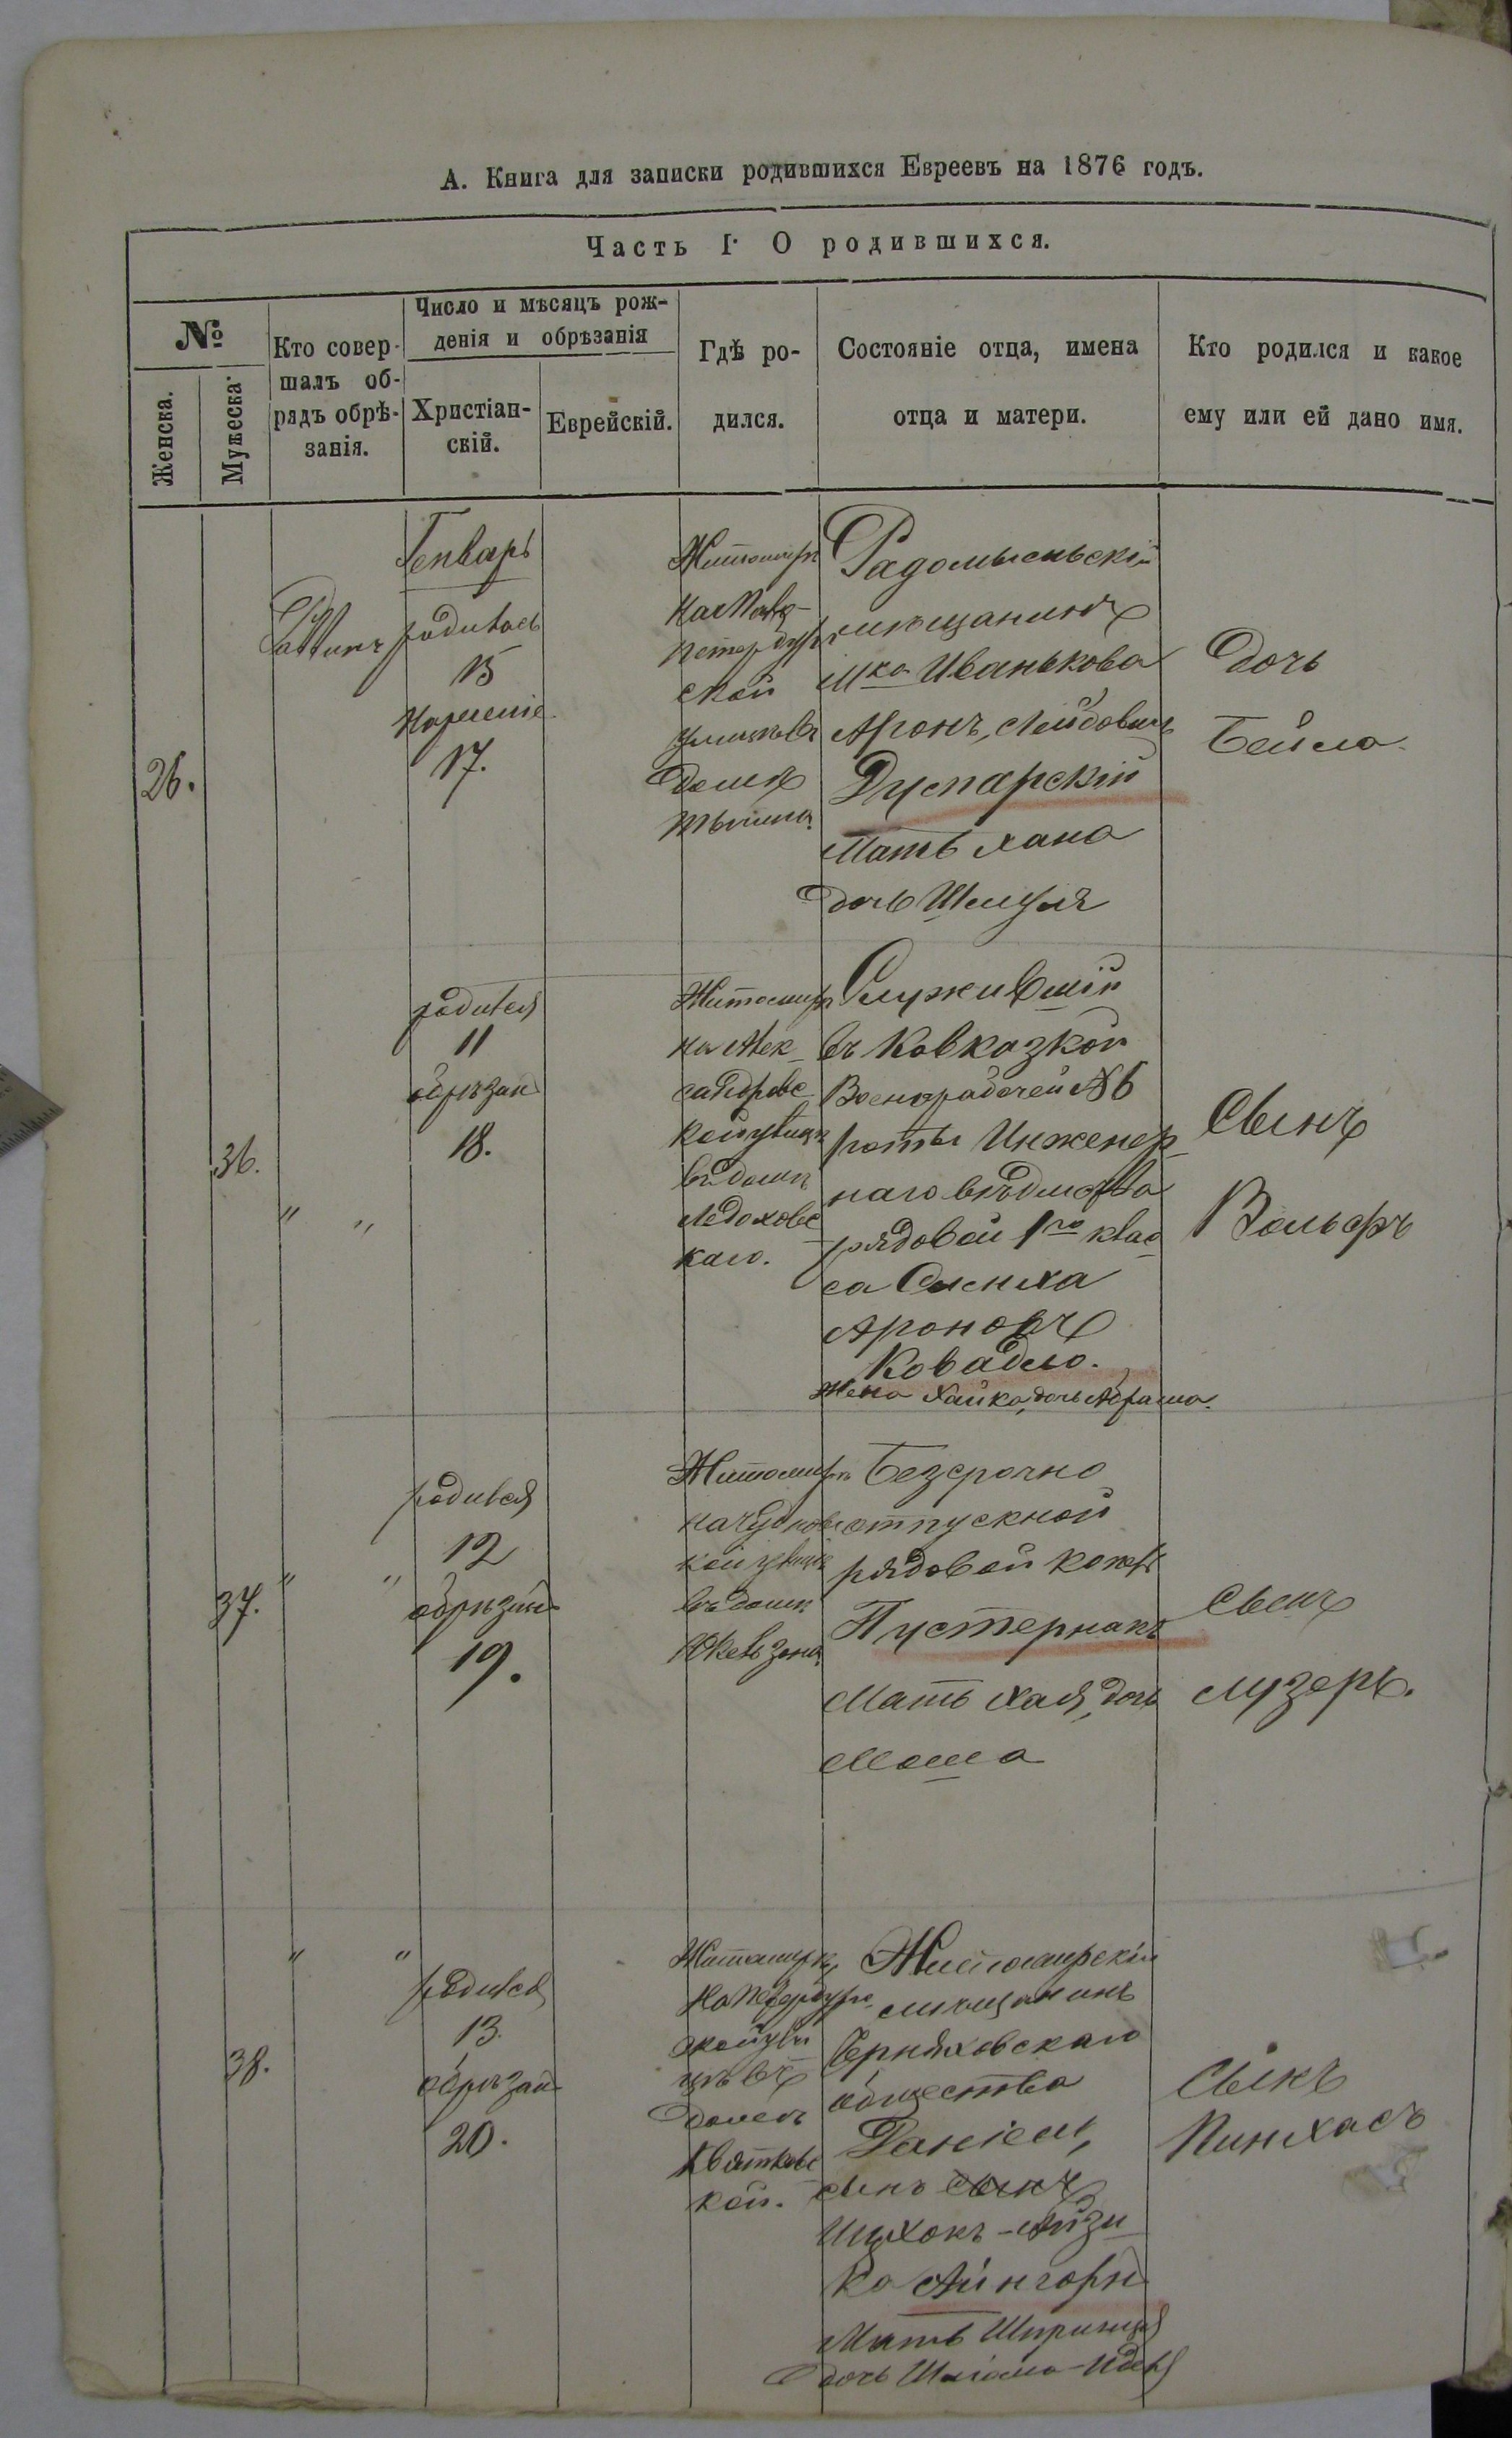 А. Книга для записки родившихся Евреевъ на 1876 годъ.
Часть I. О родившихся.
№
Женска.
Мужеска.
Кто совер-
шалъ об-
рядъ обрѣ-
занія.
Число и мѣсяцъ рож-
денія и обрѣзанія
Христіан-
скій.
Еврейскій.
Гдѣ ро-
дился.
Состояніе отца, имена
отца и матери.
Кто родился и какое
ему или ей дано имя.
26.
Генварь
родилась
15
17.
Житомиръ
ской
домѣ
Радомысльскій
мѣщанинъ
Мка Иванькова
Аронъ, Лейбовичъ
Дуспарскій
Мать Хана
дочь Шмуля
дочь
Бейла
36.
"
"
родился
11
обрѣзан
18.
Житомиръ
на Алек-
сандровс-
кой улицѣ
въ домѣ
Ледоховс-
каго.
Служившій
въ Кавказкой
Военорабочей № 6
роты Инженер-
наго вѣдмства
рядовой 1го клас-
са Симха
Ароновъ
Ковадло.
Жена Хайка, дочь Абрама.
Сынъ
Вольфъ
37.
"
"
родился
12
обрѣзан
19.
Житомиръ
на Чудновс
кой улицѣ
въ домѣ
Безсрочно
отпускной
рядовой
Пустернакъ
Мать Хая, дочь
Моша
Сынъ
Лузеръ.
38.
"
"
родился
13.
обрѣзан
20.
Житомиръ
ской ули
цѣ въ
домѣ
Квятковс
кой.
Житомирскій
мѣщанинъ
Черняховскаго
общества
Даніель,
сынъ сынъ
Ицхокъ-Айзи-
ка Айнгорнъ
Мать Шпринца
дочь
Сынъ
Пинхасъ